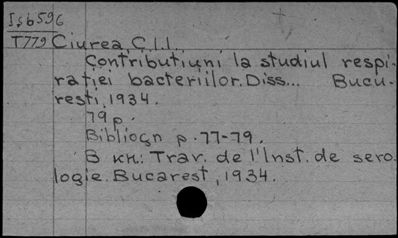 Isb596
T779 Ciurea, C.I.I.
Contributiuni la studiul respi-
raţiei bacteriilor. Diss... Bucu-
resti, 1934.
79 p.
Bibliogn p. 77-79.
В кн: Trav. de l'Inst. de sero-
logie. Bucarest, 1934.